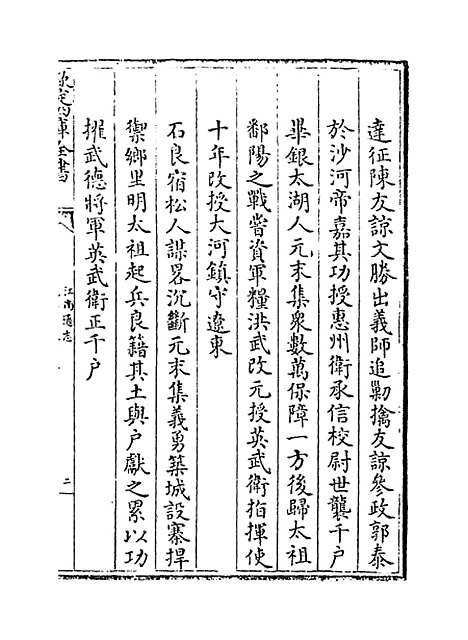 達征陳友諒文勝出義師追勦擒友諒叅政郭泰
於沙河帝嘉其功授惠州衛承信校尉世襲千户
畢銀太湖人元末集衆數萬保障一方後歸太祖
鄱陽之戰嘗資軍糧洪武改元授英武衛指揮使
十年改授大河鎮守遼東
石良宿松人謀畧沉斷元末集義勇築城設寨捍
禦鄉里明太祖起兵良籍其土與户獻之累以功
擢武德將軍英武衛正千户
欽定四庫全書
江南通志
二